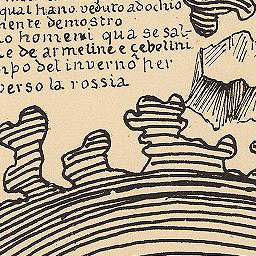 qual hano veduto adochio
mente demostro
o homeni qua se sal-
e de armeline e çebolini
npo del inverno per
verso la rossia